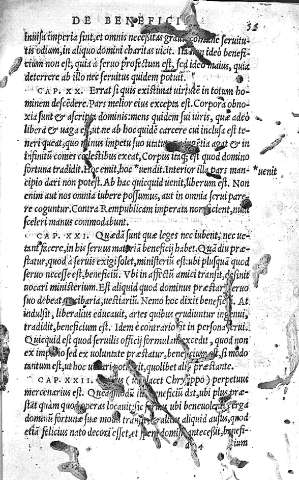 DE BENEFICI
35
inuisa imperia sint, et omnis necessitas grauis, omnis seruitu
tis odium, in aliquo domini charitas uicit. Ita non ideo benefi
cium non est, quia à seruo profectum est, sed ideo maius, quia
deterrere ab illo nec seruitus quidem potuit.
CAP. XX. Errat si quis existimat seruitutem in totum ho
minem descedere. Pars melior eius excepta est. Corpora obno
xia sunt & ascripta dominis: mens quidem sui iuris, quæ adeò
libera & uaga est, ut ne ab hoc quidē carcere cui inclusa est te
neri queat, quo minus impetu suo utatur, et ingētia agat & in
infinitū comes cœlestibus exeat. Corpus itaq; est quod domino
fortuna tradidit. Hoc emit, hoc *uendit. Interior illa pars man
*uenit
cipio dari non potest. Ab hac quicquid uenit, liberum est. Non
enim aut nos omnia iubere possumus, aut in omnia serui pare
re coguntur. Contra Rempublicam imperata non facient, nulli
sceleri manus commodabunt.
CAP. XXI. Quædā sunt quæ leges nec iubent, nec ue
tant facere, in his seruus materiā beneficij habet. Quā diu præ
statur, quod à seruis exigi solet, ministeriū est: ubi plusquā quod
seruo necesse est, beneficiū. Vbi in affectū amici transit, desinit
uocari ministerium. Est aliquid quod dominus præstare seruo
suo debeat, ut cibaria, uestiariū. Nemo hoc dixit beneficiū. At
indulsit, liberalius educauit, artes quibus erudiuntur ingenui,
tradidit, beneficium est. Idem è contrario fit in persona serui.
Quicquid est quod seruilis officij formulam excedit, quod non
ex imperio sed ex uoluntate præstatur, beneficium est, si modo
tantum est, ut hoc uocari potuerit, quolibet alio præstante.
CAP. XXII. Seruus (ut placet Chrysippo) perpetuus
mercenarius est. Quēadmodū ille beneficiū dat, ubi plus præ
stat quàm quod operas locauit: sic seruus ubi beneuolentia erga
dominū fortunæ suæ modū transit, & altius aliquid ausus, quod
etiā felicius nato decori esset, et spem domini antecessit, benefi
cium